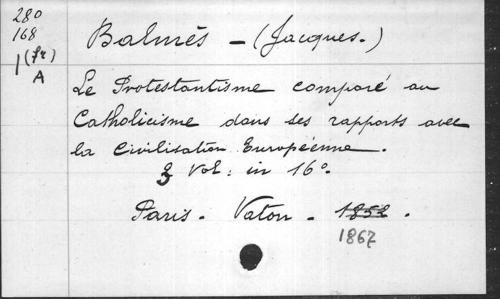 280
168
1 (fr)
A
Balmès - (Jacques.)
Le Protestantisme comparé au
Catholicisme dans ses rapports avec
la Civilisation Européenne.
3 Vol: in 16°.
Paris - Vaton - 1852.
1867